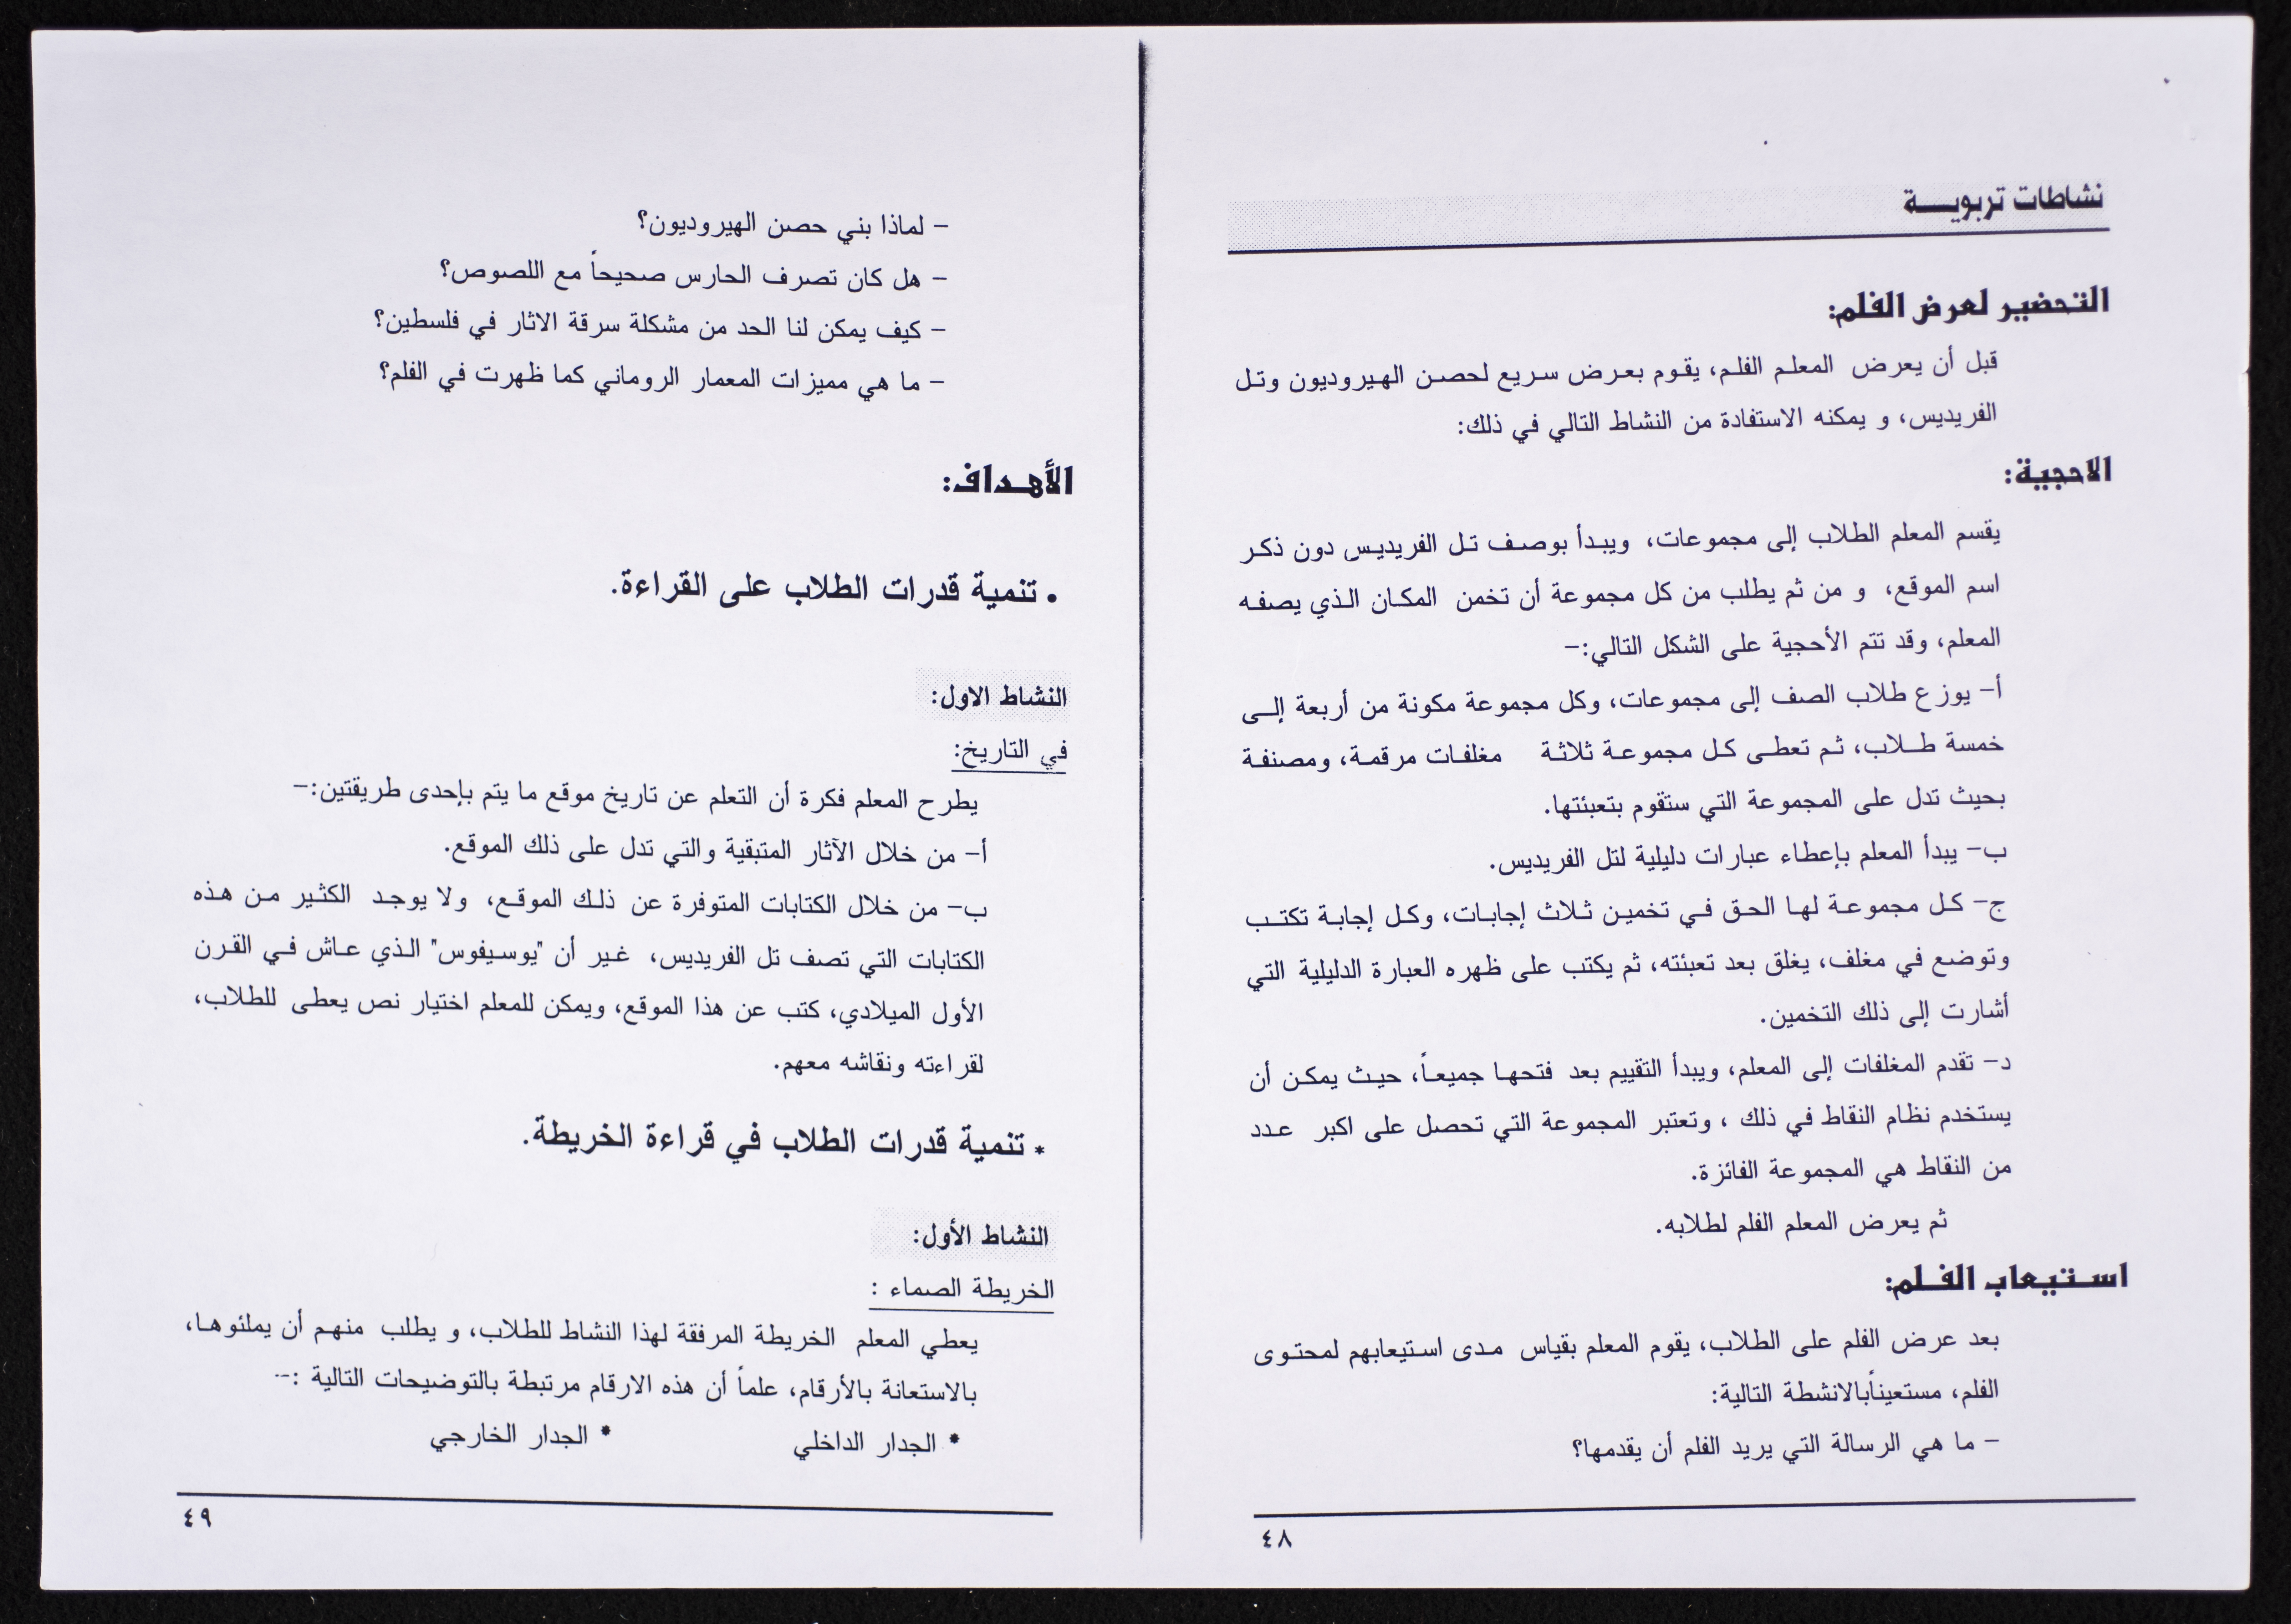 نشاطات تربويـــــة
التحضير لعرض الفلم:
قبل أن يعرض المعلم الفلم، يقوم بعرض سريع لحصن الهيروديون وتل
الفريديس، و يمكنه الاستفادة من النشاط التالي في ذلك:
الاحجية:
يقسم المعلم الطلاب إلى مجموعات، ويبدأ بوصف تل الفريديس دون ذكر
اسم الموقع، و من ثم يطلب من كل مجموعة أن تخمن المكان الذي يصفه
المعلم، وقد تتم الأحجية على الشكل التالي:-
أ- يوزع طلاب الصف إلى مجموعات، وكل مجموعة مكونة من أربعة إلى
خمسة طلاب، ثم تعطى كل مجموعة ثلاثة مغلفات مرقمة، ومصنفة
بحيث تدل على المجموعة التي ستقوم بتعبئتها.
ب- يبدأ المعلم بإعطاء عبارات دليلية لتل الفريديس.
ج- كل مجموعة لها الحق في تخمين ثلاث إجابات، وكل إجابة تكتب
وتوضع في مغلف، يغلق بعد تعبئته، ثم يكتب على ظهره العبارة الدليلية التي
أشارت إلى ذلك التخمين.
د- تقدم المغلفات إلى المعلم، ويبدأ التقييم بعد فتحها جميعاً، حيث يمكن أن
يستخدم نظام النقاط في ذلك ، وتعتبر المجموعة التي تحصل على اكبر عدد
من النقاط هي المجموعة الفائزة.
ثم يعرض المعلم الفلم لطلابه.
استيعاب الفلم:
بعد عرض الفلم على الطلاب، يقوم المعلم بقياس مدى استيعابهم لمحتوى
الفلم، مستعيناًبالانشطة التالية:
- ما هي الرسالة التي يريد الفلم أن يقدمها؟
٤٨
- لماذا بني حصن الهيروديون؟
- هل كان تصرف الحارس صحيحاً مع اللصوص؟
- كيف يمكن لنا الحد من مشكلة سرقة الاثار في فلسطين؟
- ما هي مميزات المعمار الروماني كما ظهرت في الفلم؟
الأهداف:
• تنمية قدرات الطلاب على القراءة.
النشاط الاول:
في التاريخ:
يطرح المعلم فكرة أن التعلم عن تاريخ موقع ما يتم بإحدى طريقتين:-
أ- من خلال الآثار المتبقية والتي تدل على ذلك الموقع.
ب- من خلال الكتابات المتوفرة عن ذلك الموقع، ولا يوجد الكثير من هذه
الكتابات التي تصف تل الفريديس، غير أن "يوسيفوس" الذي عاش في القرن
الأول الميلادي، كتب عن هذا الموقع، ويمكن للمعلم اختيار نص يعطى للطلاب،
لقراءته ونقاشه معهم.
* تنمية قدرات الطلاب في قراءة الخريطة.
النشاط الأول:
الخريطة الصماء :
يعطي المعلم الخريطة المرفقة لهذا النشاط للطلاب، و يطلب منهم أن يملئوها،
بالاستعانة بالأرقام، علماً أن هذه الارقام مرتبطة بالتوضيحات التالية :--
* الجدار الداخلي * الجدار الخارجي
٤٩